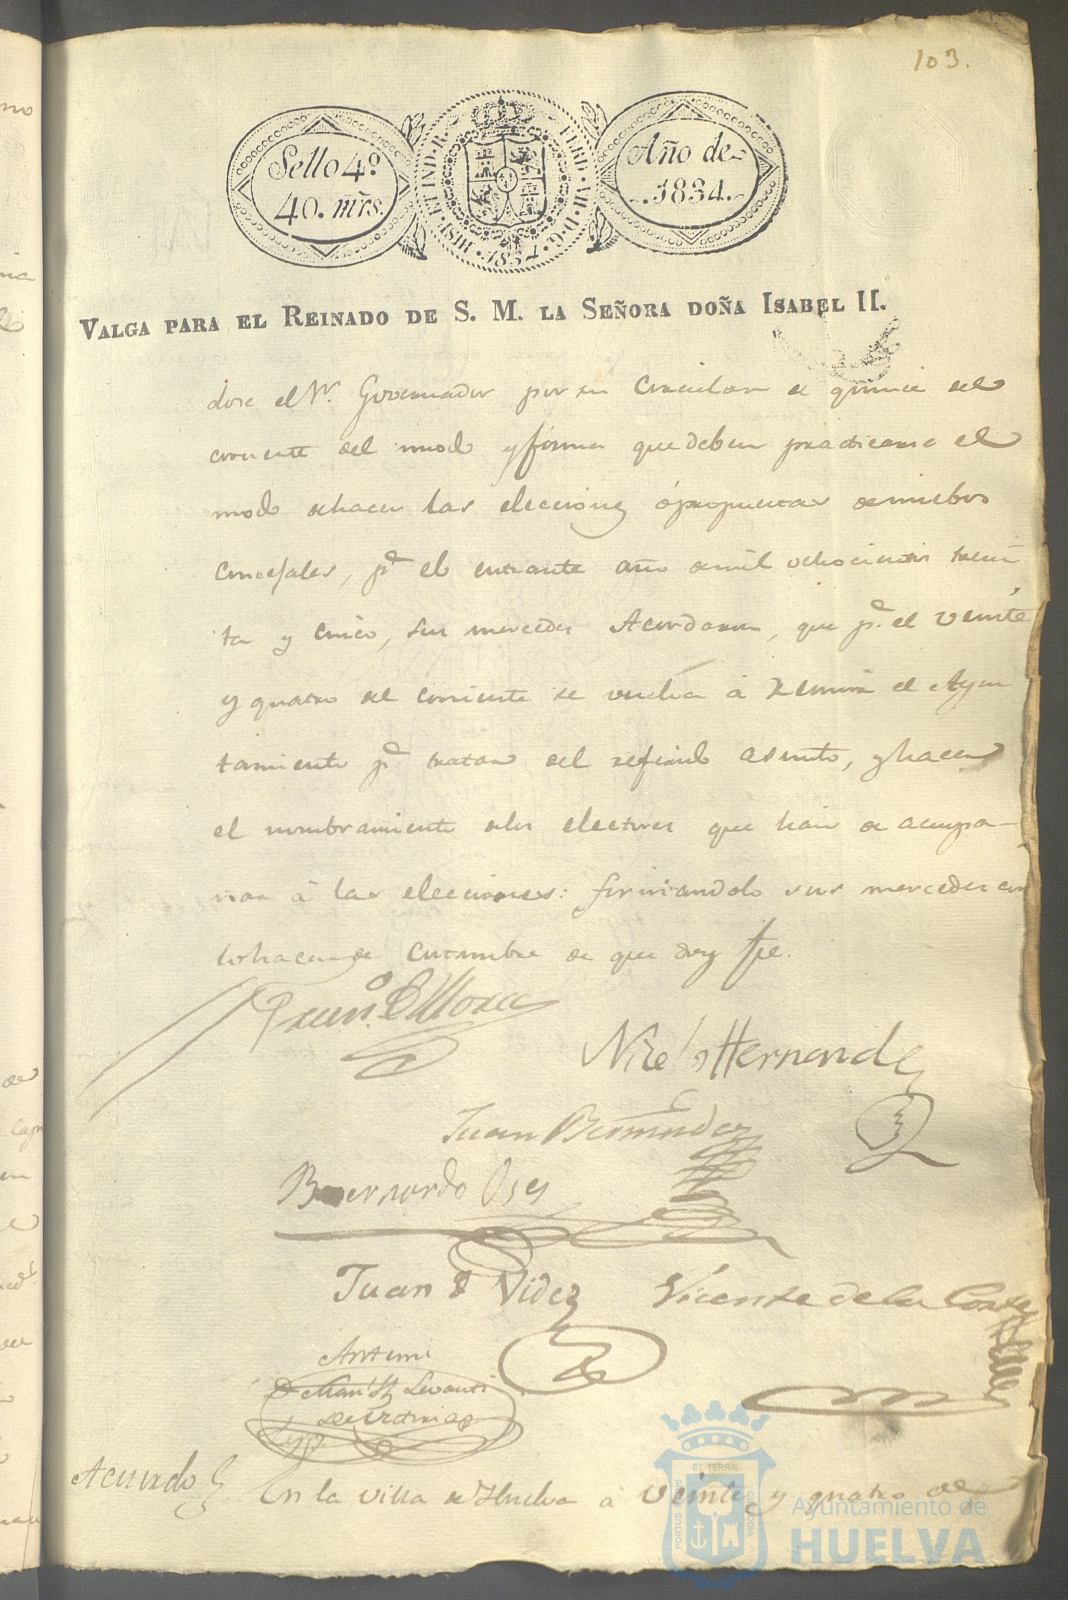 103.
Sello 4º
40. mrs.
HISP. ET IND. R. FERD. VII. D. G. 1834.
Año de
1834.
VALGA PARA EL REINADO DE S. M. LA SEÑORA DOÑA ISABEL II.
dose el Sr. Governador por su Circular de quince del
corriente del modo y forma que deben practicarse el
modo de hacer las elecciones ó propuestas de nuebos
Concejales, pª el entrante año de mil ochocientos trein
ta y cinco, sus mercedes Acordaron, que pª el veinte
y quatro del corriente se vuelva á reunir el Ayun
tamiento pª tratar del referido asunto, y hacer
el nombramiento de los electores que han de acompa-
ñar á las elecciones: firmandolo sus mercedes
de que doy fe.
Nicolas Hernandez
Juan Bermudez
Bernardo
Juan Videz
Vicente de la Corte
Antemi
Acuerdo
En la villa de Huelva á veinte y quatro de
PORTUS MARIS ET TERRAE CUSTODIA
Ayuntamiento de
HUELVA